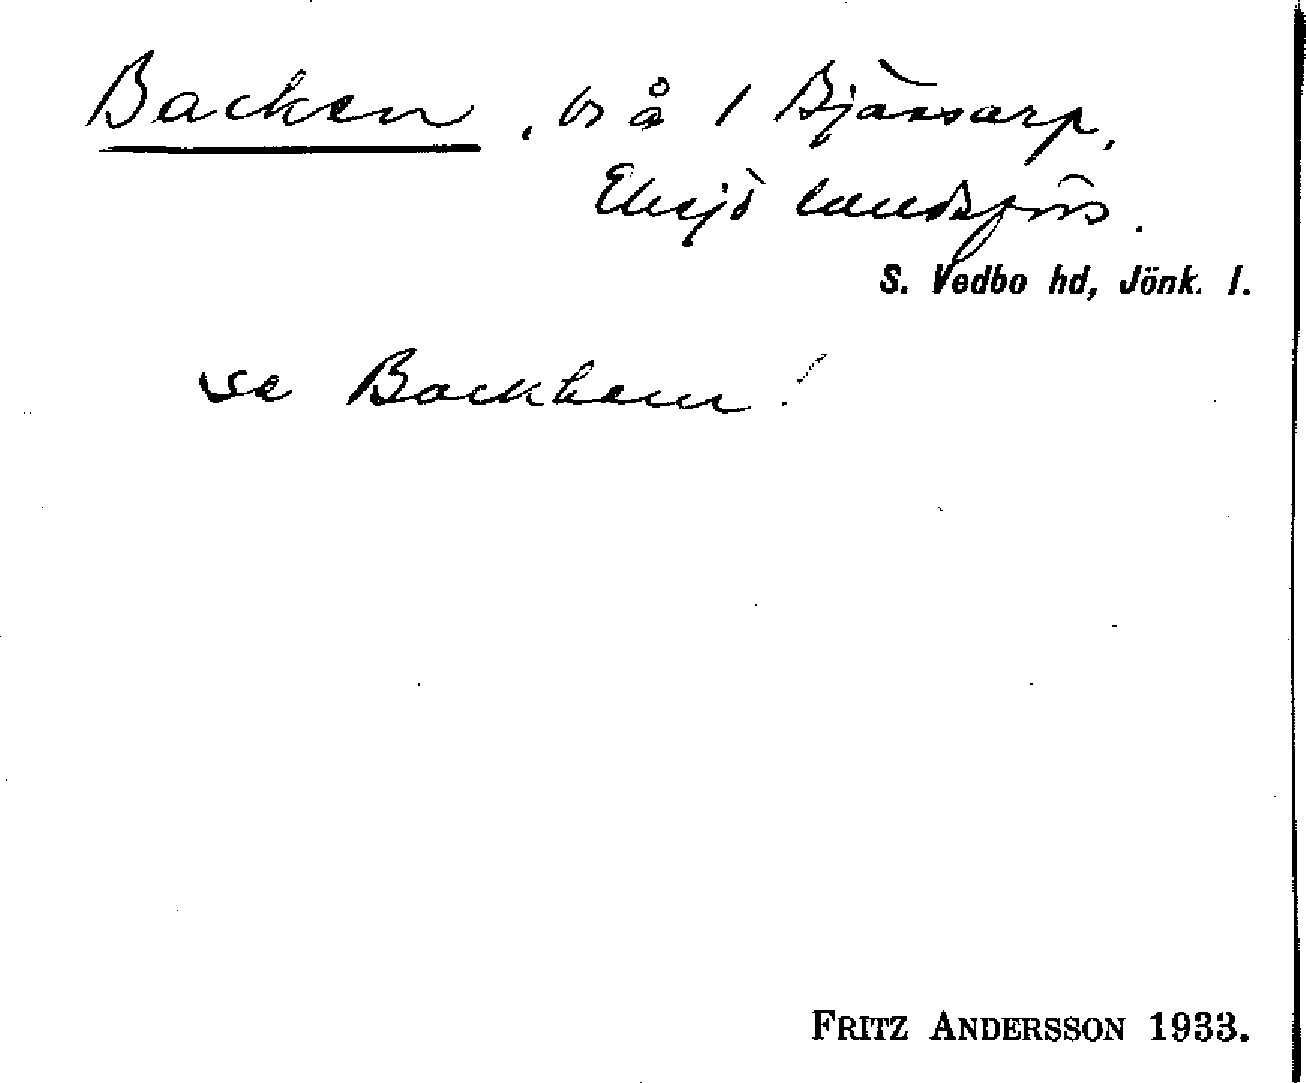 Backen, br å 1 Bjässarp,
Eksjö landsförs.
S. Vedbo hd, Jönk. l.
se Backhem!
FRITZ ANDERSSON 1933.